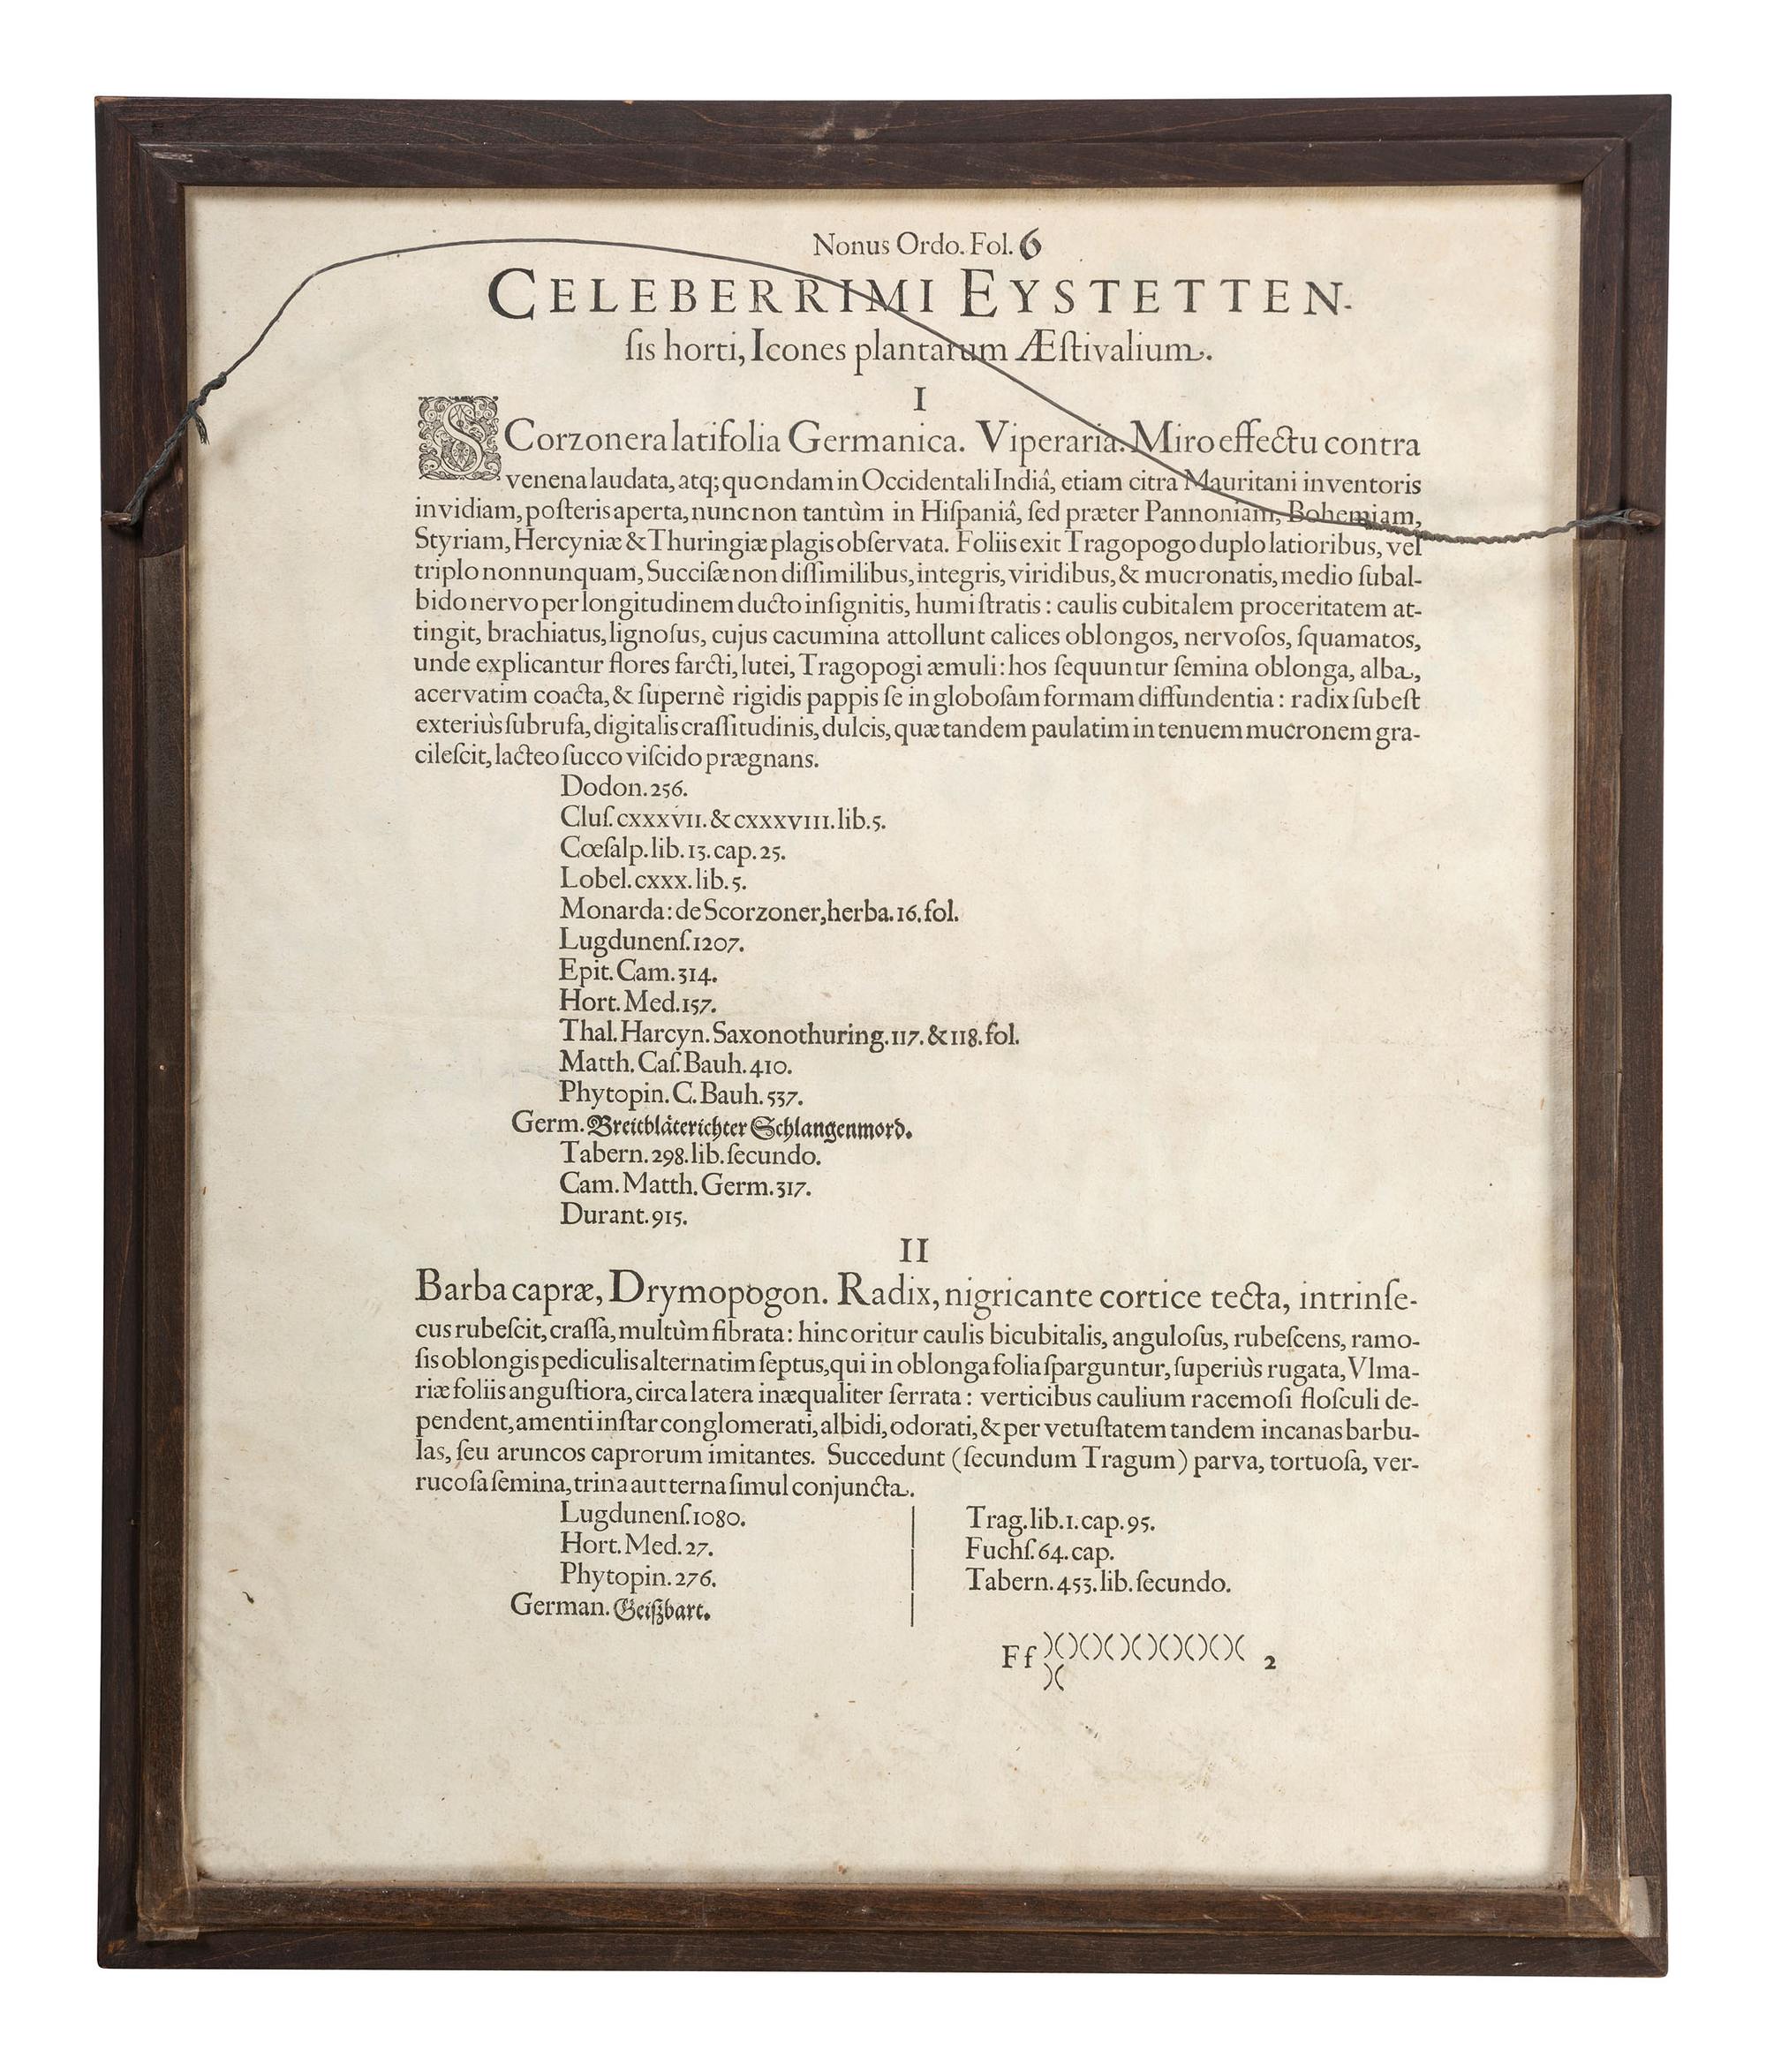 Nonus Ordo. Fol. 6
CELEBERRIMI EYSTETTEN-
ſis horti, Icones plantarum Æſtivalium.
I
SCorzonera latifolia Germanica. Viperaria. Miro effectu contra
venena laudata, atq; quondam in Occidentali Indiâ, etiam citra Mauritani inventoris
invidiam, poſteris aperta, nunc non tantùm in Hiſpaniâ, ſed præter Pannoniam, Bohemiam,
Styriam, Hercyniæ & Thuringiæ plagis obſervata. Foliis exit Tragopogo duplo latioribus, vel
triplo nonnunquam, Succiſæ non diſſimilibus, integris, viridibus, & mucronatis, medio ſubal-
bido nervo per longitudinem ducto inſignitis, humi ſtratis : caulis cubitalem proceritatem at-
tingit, brachiatus, lignoſus, cujus cacumina attollunt calices oblongos, nervoſos, ſquamatos,
unde explicantur flores farcti, lutei, Tragopogi æmuli : hos ſequuntur ſemina oblonga, alba,
acervatim coacta, & ſupernè rigidis pappis ſe in globoſam formam diffundentia : radix ſubeſt
exteriùs ſubrufa, digitalis craſſitudinis, dulcis, quæ tandem paulatim in tenuem mucronem gra-
cileſcit, lacteo ſucco viſcido prægnans.
Dodon. 256.
Cluſ. CXXXVII. & CXXXVIII. lib. 5.
Cœſalp. lib. 13. cap. 25.
Lobel. CXXX. lib. 5.
Monarda : de Scorzoner, herba. 16. fol.
Lugdunenſ. 1207.
Epit. Cam. 314.
Hort. Med. 157.
Thal. Harcyn. Saxonothuring. 117. & 118. fol.
Matth. Caſ. Bauh. 410.
Phytopin. C. Bauh. 537.
Germ. Breitbläterichter Schlangenmord.
Tabern. 298. lib. ſecundo.
Cam. Matth. Germ. 317.
Durant. 915.
II
Barba capræ, Drymopogon. Radix, nigricante cortice tecta, intrinſe-
cus rubeſcit, craſſa, multùm fibrata : hinc oritur caulis bicubitalis, anguloſus, rubeſcens, ramo-
ſis oblongis pediculis alternatim ſeptus, qui in oblonga folia ſparguntur, ſuperiùs rugata, Vlma-
riæ foliis anguſtiora, circa latera inæqualiter ſerrata : verticibus caulium racemoſi floſculi de-
pendent, amenti inſtar conglomerati, albidi, odorati, & per vetuſtatem tandem incanas barbu-
las, ſeu aruncos caprorum imitantes. Succedunt (ſecundum Tragum) parva, tortuoſa, ver-
rucoſa ſemina, trina aut terna ſimul conjuncta.
Lugdunenſ. 1080.
Hort. Med. 27.
Phytopin. 276.
German. Geiſzbart.
Trag. lib. 1. cap. 95.
Fuchſ. 64. cap.
Tabern. 453. lib. ſecundo.
Ff )()()()()()()()( 2
)(